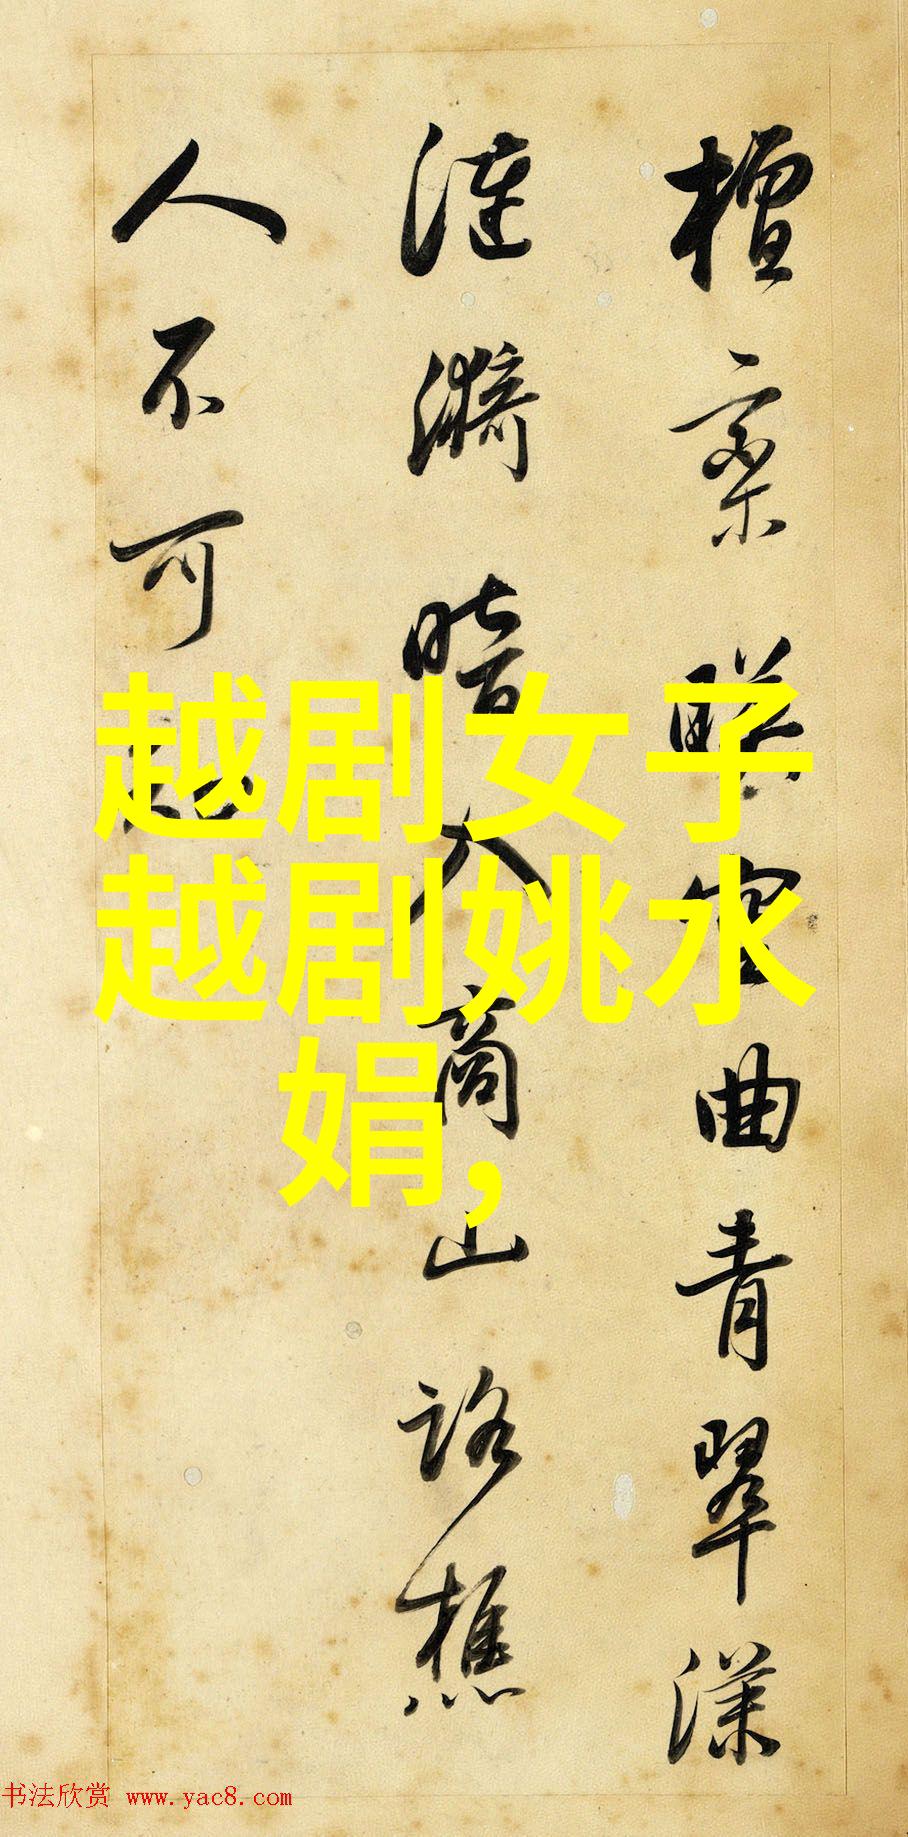 檀栾映空曲青翠漾
涟漪暗入商山路樵
人不可知
越剧女子
越剧姚水
娟,
书法欣赏 www.yac8.com